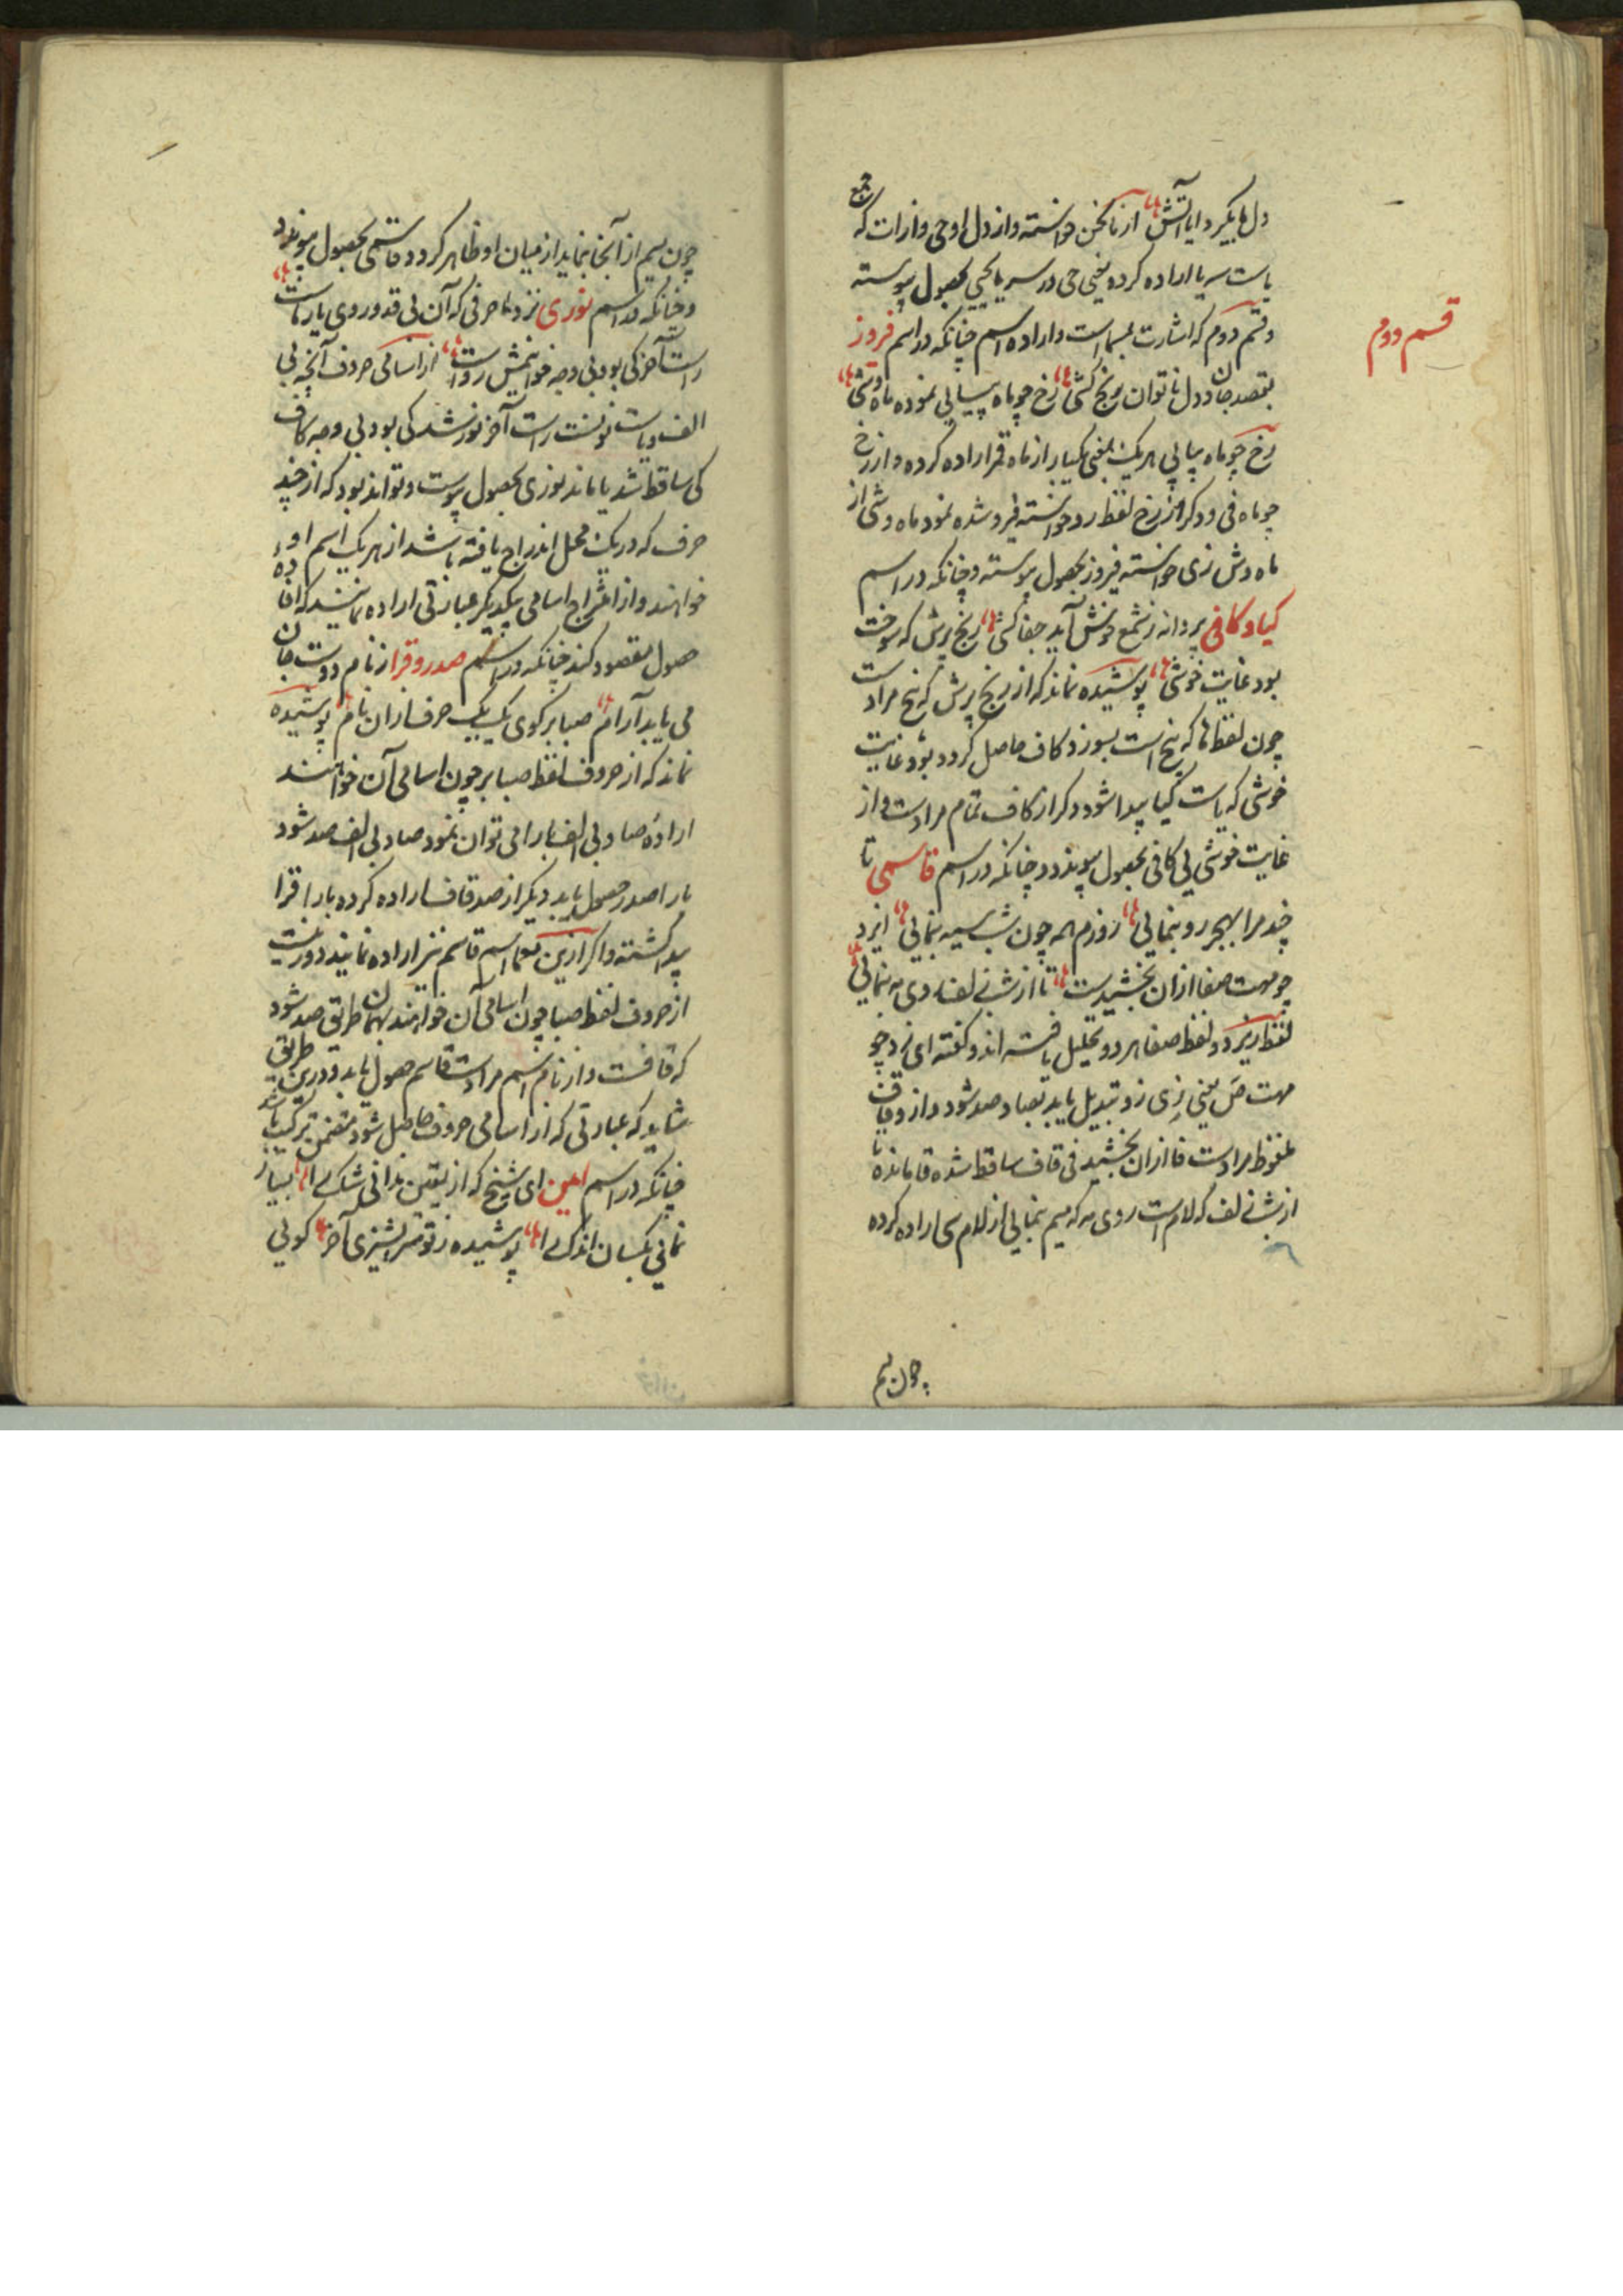 دل ها بگیرد ایا آتش از ناخن خواسته و از دل او حی و از ات که
یاست سر یا اراده کرده یعنی حی در سر یا یحیی بحصول پیوسته
قسم دوم
و قسم دوم که اشارت بمسماست و اراده اسم چنانکه در اسم فروز
بقصد جان و دل ناتوان رنج کشی رخ چو ماه پیاپی نموده ماه وشی
رخ چو ماه پیاپی هر یک یعنی یکبار از ماه قمر اراده کرده و از رخ
چو ماه فی و دکر از رخ لفظ رو خواسته فیرو شده نمود ماه وشی از
ماه وش زی خواسته فیروز بحصول پیوسته و چنانکه در اسم
کیا و کافی پروانه ز شمع خوش آید جفا کشی رنج پرش که سوخت
بود غایت خوشی پوشیده نماند که از رنج پرش که نج مرادست
چون لفظ ها که نج است بسوزد کاف حاصل کردد بود غایت
خوشی که یاست کیا پیدا شود دکر از کاف تمام مرادست و از
غایت خوشی یی کافی بحصول پیوندد و چنانکه در اسم قاسمی تا
چند مرا بهجر رو بنمایی روزم همه چون شب سیه بنمایی ایزد
چو مهت صفا از ان بخشیدست تا از شب زلف روی مه بنمایی
لفظ ایزد و لفظ صفا هر دو تحلیل یافته اند و کفته ای زد چو
مهت ص یعنی زی زد تبدیل یابد بصاد صد شود و از و قاف
ملفوظ مرادست فا از ان بخشید فی قاف ساقط شده قا مانده تا
از شب زلف که لام است روی مه که میم بنمایی از لام سی اراده کرده
چون میم
چون میم از آنجا بنماید از میان او ظاهر کردد قاسمی بحصول پیوندد
و چنانکه در اسم نوری نزد ما حرفی که آن بی قد و روی یار ماست
راست آخر کی بود بی وجه خوانیمش رواست از اسامی حروف آنچه بی
الف و یاست نونست راست آخر نور شد کی بود بی وجه کاف
کی ساقط شد یا ماند نوری بحصول پیوست و تواند بود که از چند
حرف که در یک محل اندراج یافته باشد از هر یک اسم او
خواهند و از امتزاج اسامی یکدیکر عبارتی اراده نمایند که افاده
حصول مقصود کند چنانکه در اسم صدر و قرا از نام دوست جان
می یابد آرام صبا بر کوی یک یک حرف از ان نام پوشیده
نماند که از حروف لفظ صبا بر چون اسامی آن خواهند
اراده صاد بی الف با را می توان نمود صاد بی الف صد شود
با را صدر حصول یابد دیکر از صد قاف اراده کرده با را قرا
پیدا کشته و اکر ازین معما اسم قاسم نیز اراده نمایند دور نیست
از حروف لفظ صبا چون اسامی آن خواهند بهمان طریق صد شود
که قافست و از نام اسم مرادست قاسم حصول یابد و درین طریق
شاید که عبارتی که از اسامی حروف حاصل شود متضمن ترکیب باشد
چنانکه در اسم امین ای شیخ که از یقین ندانی شک را بسیار
نمانی یکسان اندک را پوشیده ز تو آخر کویی